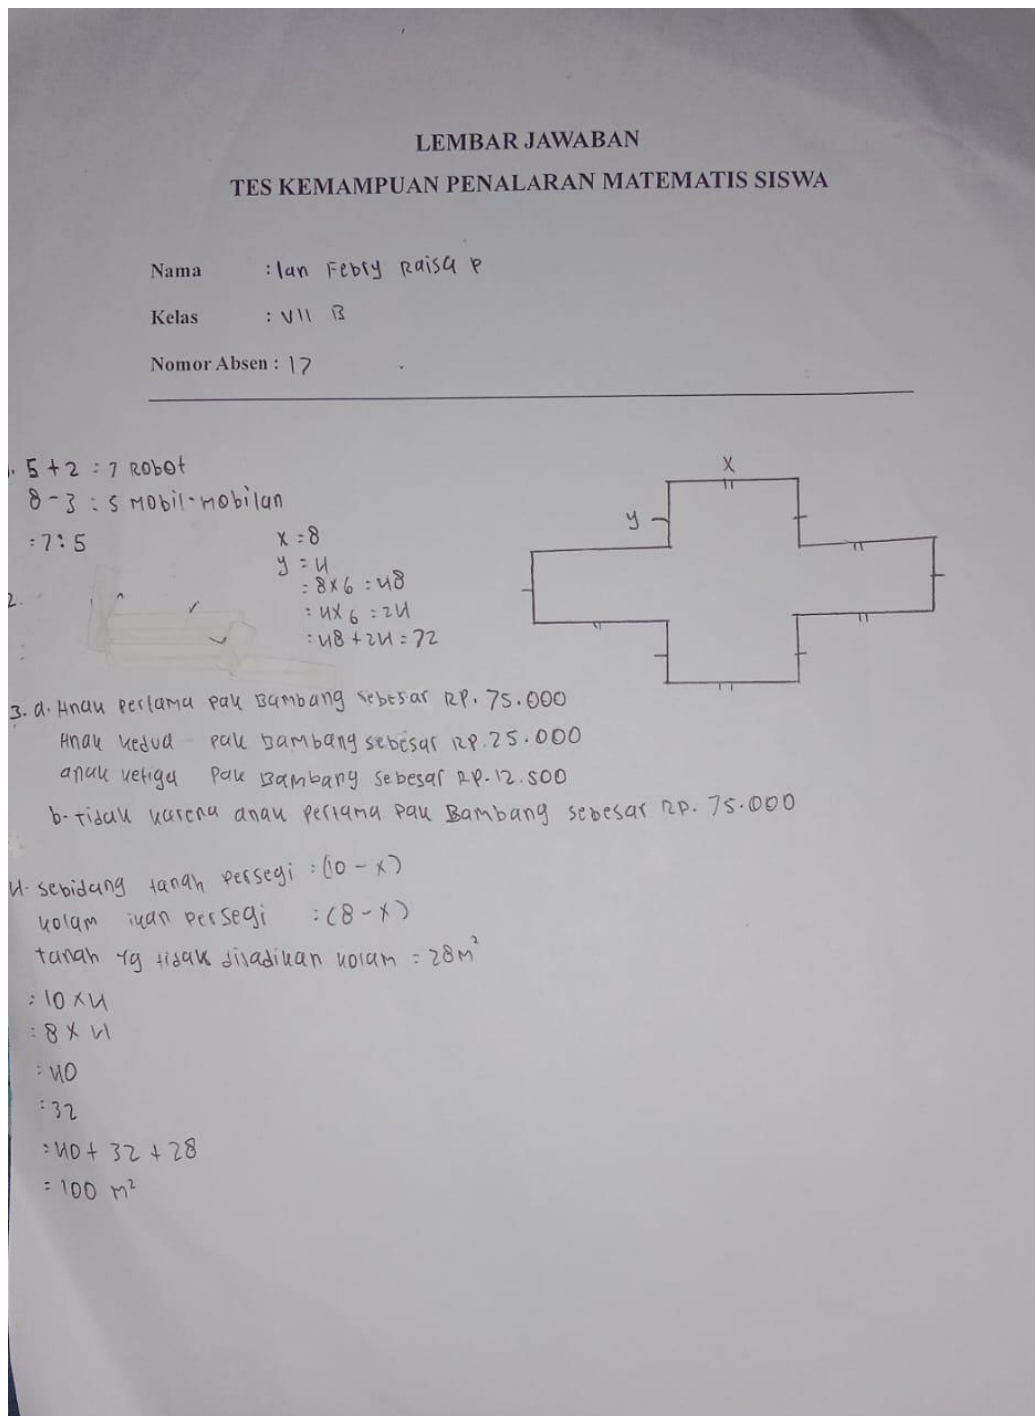 LEMBAR JAWABAN
TES KEMAMPUAN PENALARAN MATEMATIS SISWA
Nama : Ian Febry Raisa P
Kelas : VII B
Nomor Absen : 17
. 5 + 2 : 7 Robot
8 - 3 : 5 Mobil-mobilan
: 7 : 5
2.
x = 8
y = 4
: 8 x 6 : 48
: 4 x 6 : 24
: 48 + 24 : 72
x
y
3. a. Anak Pertama Pak Bambang sebesar RP. 75.000
Anak kedua Pak Bambang sebesar RP. 25.000
anak ketiga Pak Bambang sebesar RP. 12.500
b. tidak karena anak Pertama Pak Bambang sebesar RP. 75.000
4. sebidang tanah Persegi : (10 - x)
kolam ikan Persegi : (8 - x)
tanah yg tidak dijadikan kolam = 28 m²
: 10 x 4
: 8 x 4
: 40
: 32
: 40 + 32 + 28
= 100 m²